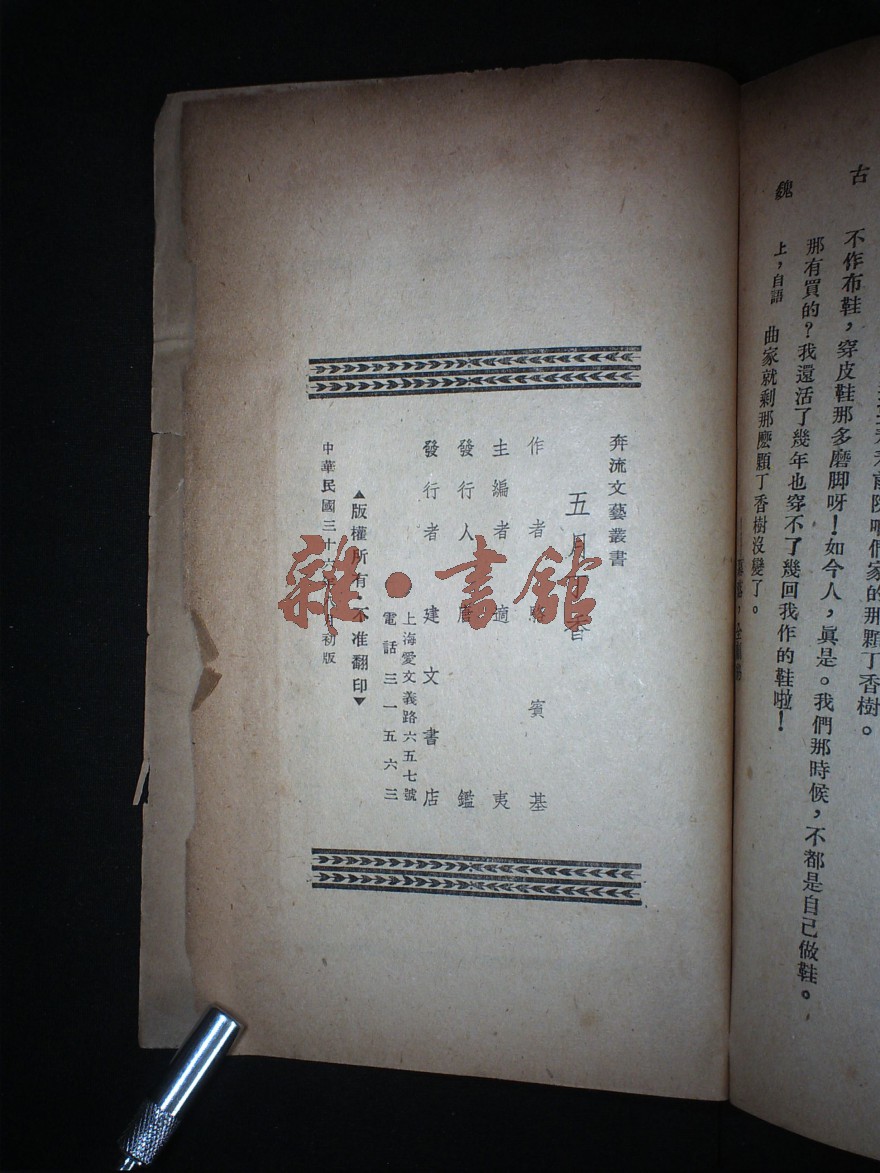 古
不作布鞋，穿皮鞋那多磨脚呀！如今人，眞是。我們那時候，不都是自己做鞋。
那有買的？我還活了幾年也穿不了幾回我作的鞋啦！
魏
上，自語
曲家就剩那麽顆丁香樹沒變了。
奔流文藝叢書
五月丁香
作者駱賓基
主編者適夷
發行人唐鑑
發行者建文書店
上海愛文義路六五七號
電話三一五六三
▲版權所有不准翻印▼
中華民國三十六年八月初版
雜·書館